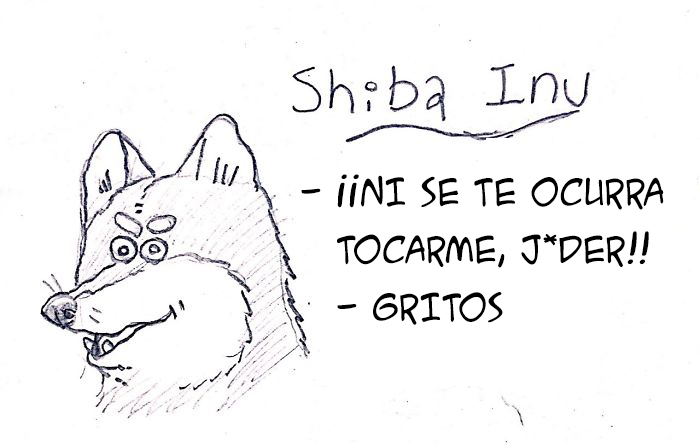 Shiba Inu
- ¡¡NI SE TE OCURRA
TOCARME, J*DER!!
- GRITOS